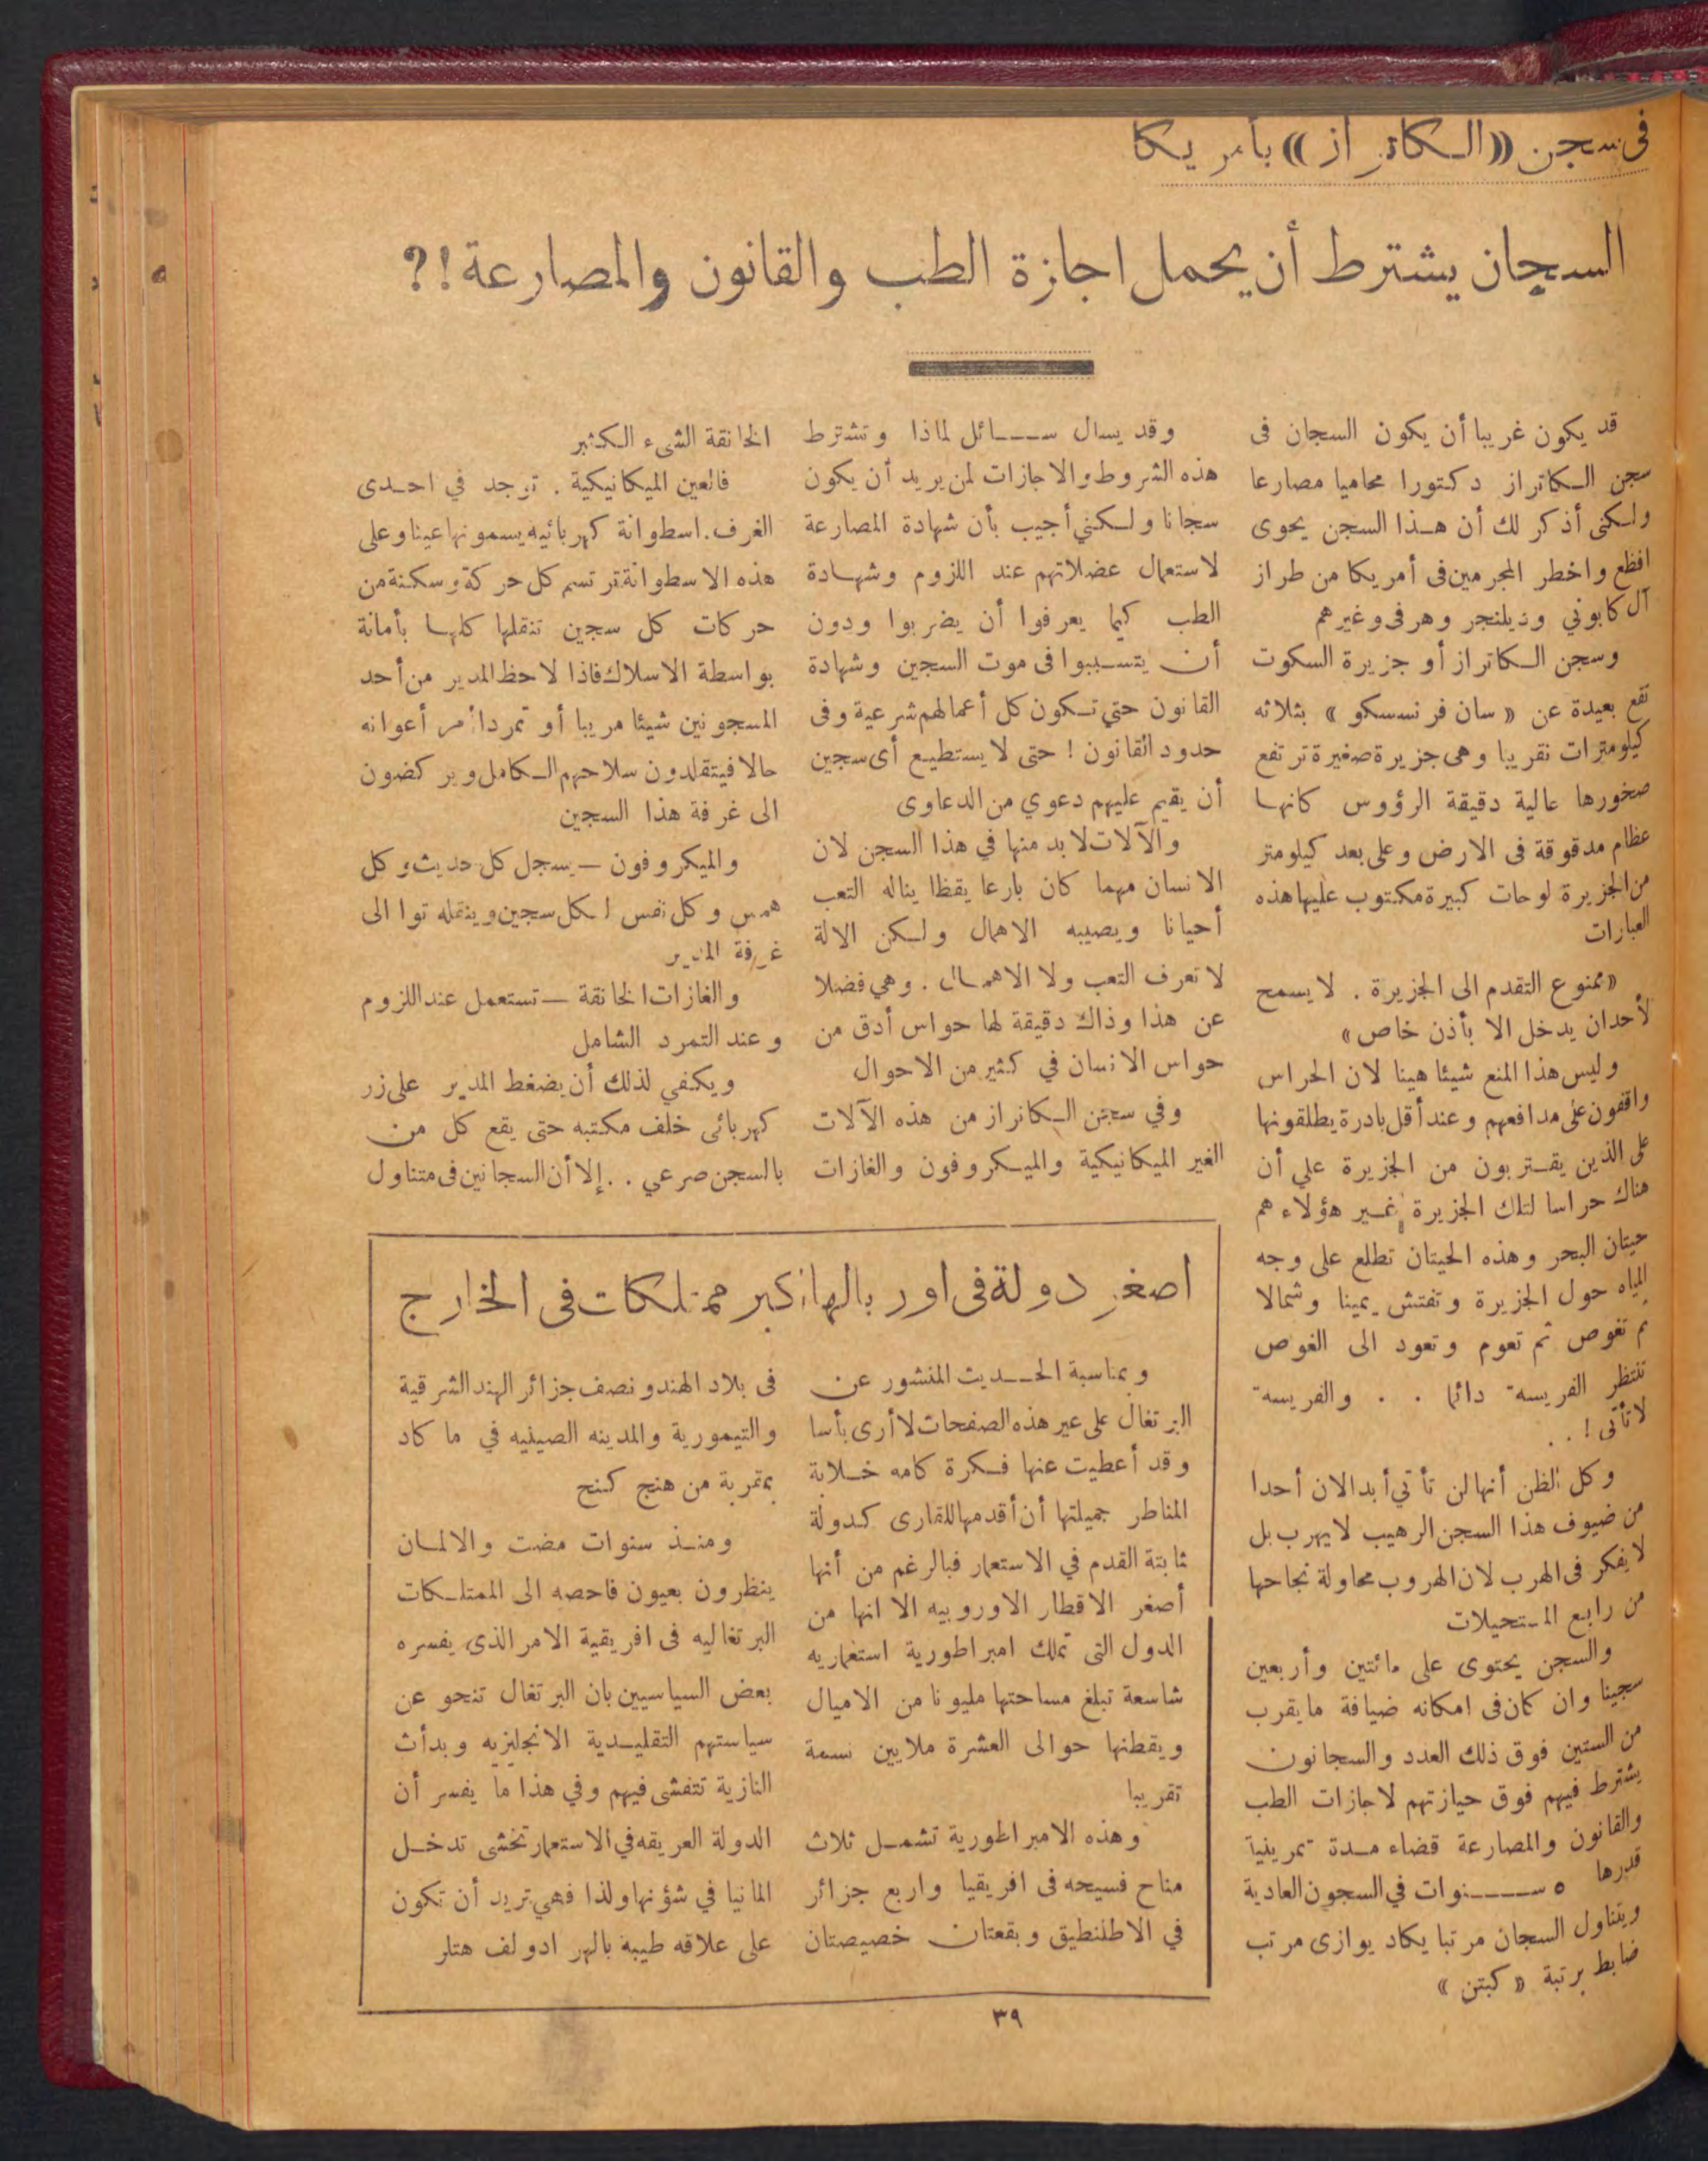 فى سجن «الكاتراز» بأمريكا
السجان يشترط أن يحمل اجازة الطب والقانون والمصارعة!?
قد يكون غريبا أن يكون السجان فى
سجن الكاتراز دكتورا محاميا مصارعا
ولكنى أذكر لك أن هذا السجن يحوى
افظع واخطر المجرمين فى أمريكا من طراز
آل كابوني وديلنجر وهرفى وغيرهم
وسجن الكاتراز أو جزيرة السكوت
تقع بعيدة عن «سان فرنسسكو» بثلاثه
كيلومترات تقريبا وهى جزيرة صغيرة ترتفع
صخورها عالية دقيقة الرؤوس كانها
عظام مدقوقة فى الارض وعلى بعد كيلومتر
من الجزيرة لوحات كبيرة مكتوب عليها هذه
العبارات
«ممنوع التقدم الى الجزيرة . لا يسمح
لأحد ان يدخل الا بأذن خاص»
وليس هذا المنع شيئا هينا لان الحراس
واقفون على مدافعهم وعند أقل بادرة يطلقونها
على الذين يقتربون من الجزيرة علي أن
هناك حراسا لتلك الجزيرة غير هؤلاء هم
حيتان البحر وهذه الحيتان تطلع على وجه
المياه حول الجزيرة وتفتش يمينا وشمالا
ثم تغوص ثم تعوم وتعود الى الغوص
تنتظر الفريسة دائما . . والفريسة
لا تأتى ! . .
وكل الظن أنها لن تأتي أبدا لان أحدا
من ضيوف هذا السجن الرهيب لا يهرب بل
لا يفكر فى الهرب لان الهروب محاولة نجاحها
من رابع المستحيلات
والسجن يحتوى على مائتين وأربعين
سجينا وان كان فى امكانه ضيافة ما يقرب
من الستين فوق ذلك العدد والسجانون
يشترط فيهم فوق حيازتهم لاجازات الطب
والقانون والمصارعة قضاء مدة تمرينية
قدرها ٥ سنوات في السجون العادية
ويتناول السجان مرتبا يكاد يوازى مرتب
ضابط برتبة «كبتن»
وقد يسال سائل لماذا وتشترط
هذه الشروط والاجازات لمن يريد أن يكون
سجانا ولكنني أجيب بأن شهادة المصارعة
لاستعمال عضلاتهم عند اللزوم وشهادة
الطب كيما يعرفوا أن يضربوا ودون
أن يتسببوا فى موت السجين وشهادة
القانون حتي تكون كل أعمالهم شرعية وفى
حدود القانون ! حتى لا يستطيع أى سجين
أن يقيم عليهم دعوي من الدعاوى
والآلات لا بد منها في هذا السجن لان
الانسان مهما كان بارعا يقظا يناله التعب
أحيانا ويصيبه الاهمال ولكن الالة
لا تعرف التعب ولا الاهمال . وهي فضلا
عن هذا وذاك دقيقة لها حواس أدق من
حواس الانسان في كثير من الاحوال
وفي سجن الكاتراز من هذه الآلات
الغير الميكانيكية والميكروفون والغازات
الخانقة الشىء الكثير
فالعين الميكانيكية . توجد في احدى
الغرف . اسطوانة كهربائيه يسمونها عينا وعلى
هذه الاسطوانة ترتسم كل حركة وسكنة من
حركات كل سجين تنقلها كلها بأمانة
بواسطة الاسلاك فاذا لاحظ المدير من أحد
المسجونين شيئا مريبا أو تمردا أمر أعوانه
حالا فيتقلدون سلاحهم الكامل ويركضون
الى غرفة هذا السجين
والميكروفون — يسجل كل حديث وكل
همس وكل نفس لكل سجين وينقله توا الى
غرفة المدير
والغازات الخانقة — تستعمل عند اللزوم
وعند التمرد الشامل
ويكفي لذلك أن يضغط المدير على زر
كهربائى خلف مكتبه حتى يقع كل من
بالسجن صرعي . . إلا أن السجانين فى متناول
اصغر دولة فى اوربا لها اكبر ممتلكات فى الخارج
وبمناسبة الحديث المنشور عن
البرتغال على عير هذه الصفحات لا أرى بأسا
وقد أعطيت عنها فكرة كامه خلابة
المناطر جميلتها أن أقدمها للقارى كدولة
ثابتة القدم في الاستعمار فبالرغم من أنها
أصغر الاقطار الاوروبيه الا انها من
الدول التى تملك امبراطورية استعماريه
شاسعة تبلغ مساحتها مليونا من الاميال
ويقطنها حوالى العشرة ملايين نسمة
تقريبا
وهذه الامبراطورية تشمل ثلاث
مناح فسيحه فى افريقيا واربع جزائر
في الاطلنطيق وبقعتان خصيصتان
فى بلاد الهند ونصف جزائر الهند الشرقية
والتيمورية والمدينه الصينيه في ماكاد
بمقربة من هنج كنج
ومنذ سنوات مضت والالمان
ينظرون بعيون فاحصه الى الممتلكات
البرتغاليه فى افريقية الامر الذى يفسره
بعض السياسيين بان البرتغال تنحو عن
سياستهم التقليدية الانجليزيه وبدأت
النازية تتفشى فيهم وفي هذا ما يفسر أن
الدولة العريقه في الاستعمار تخشى تدخل
المانيا في شؤنها ولذا فهي تريد أن تكون
على علاقه طيبة بالهر ادولف هتلر
٣٩